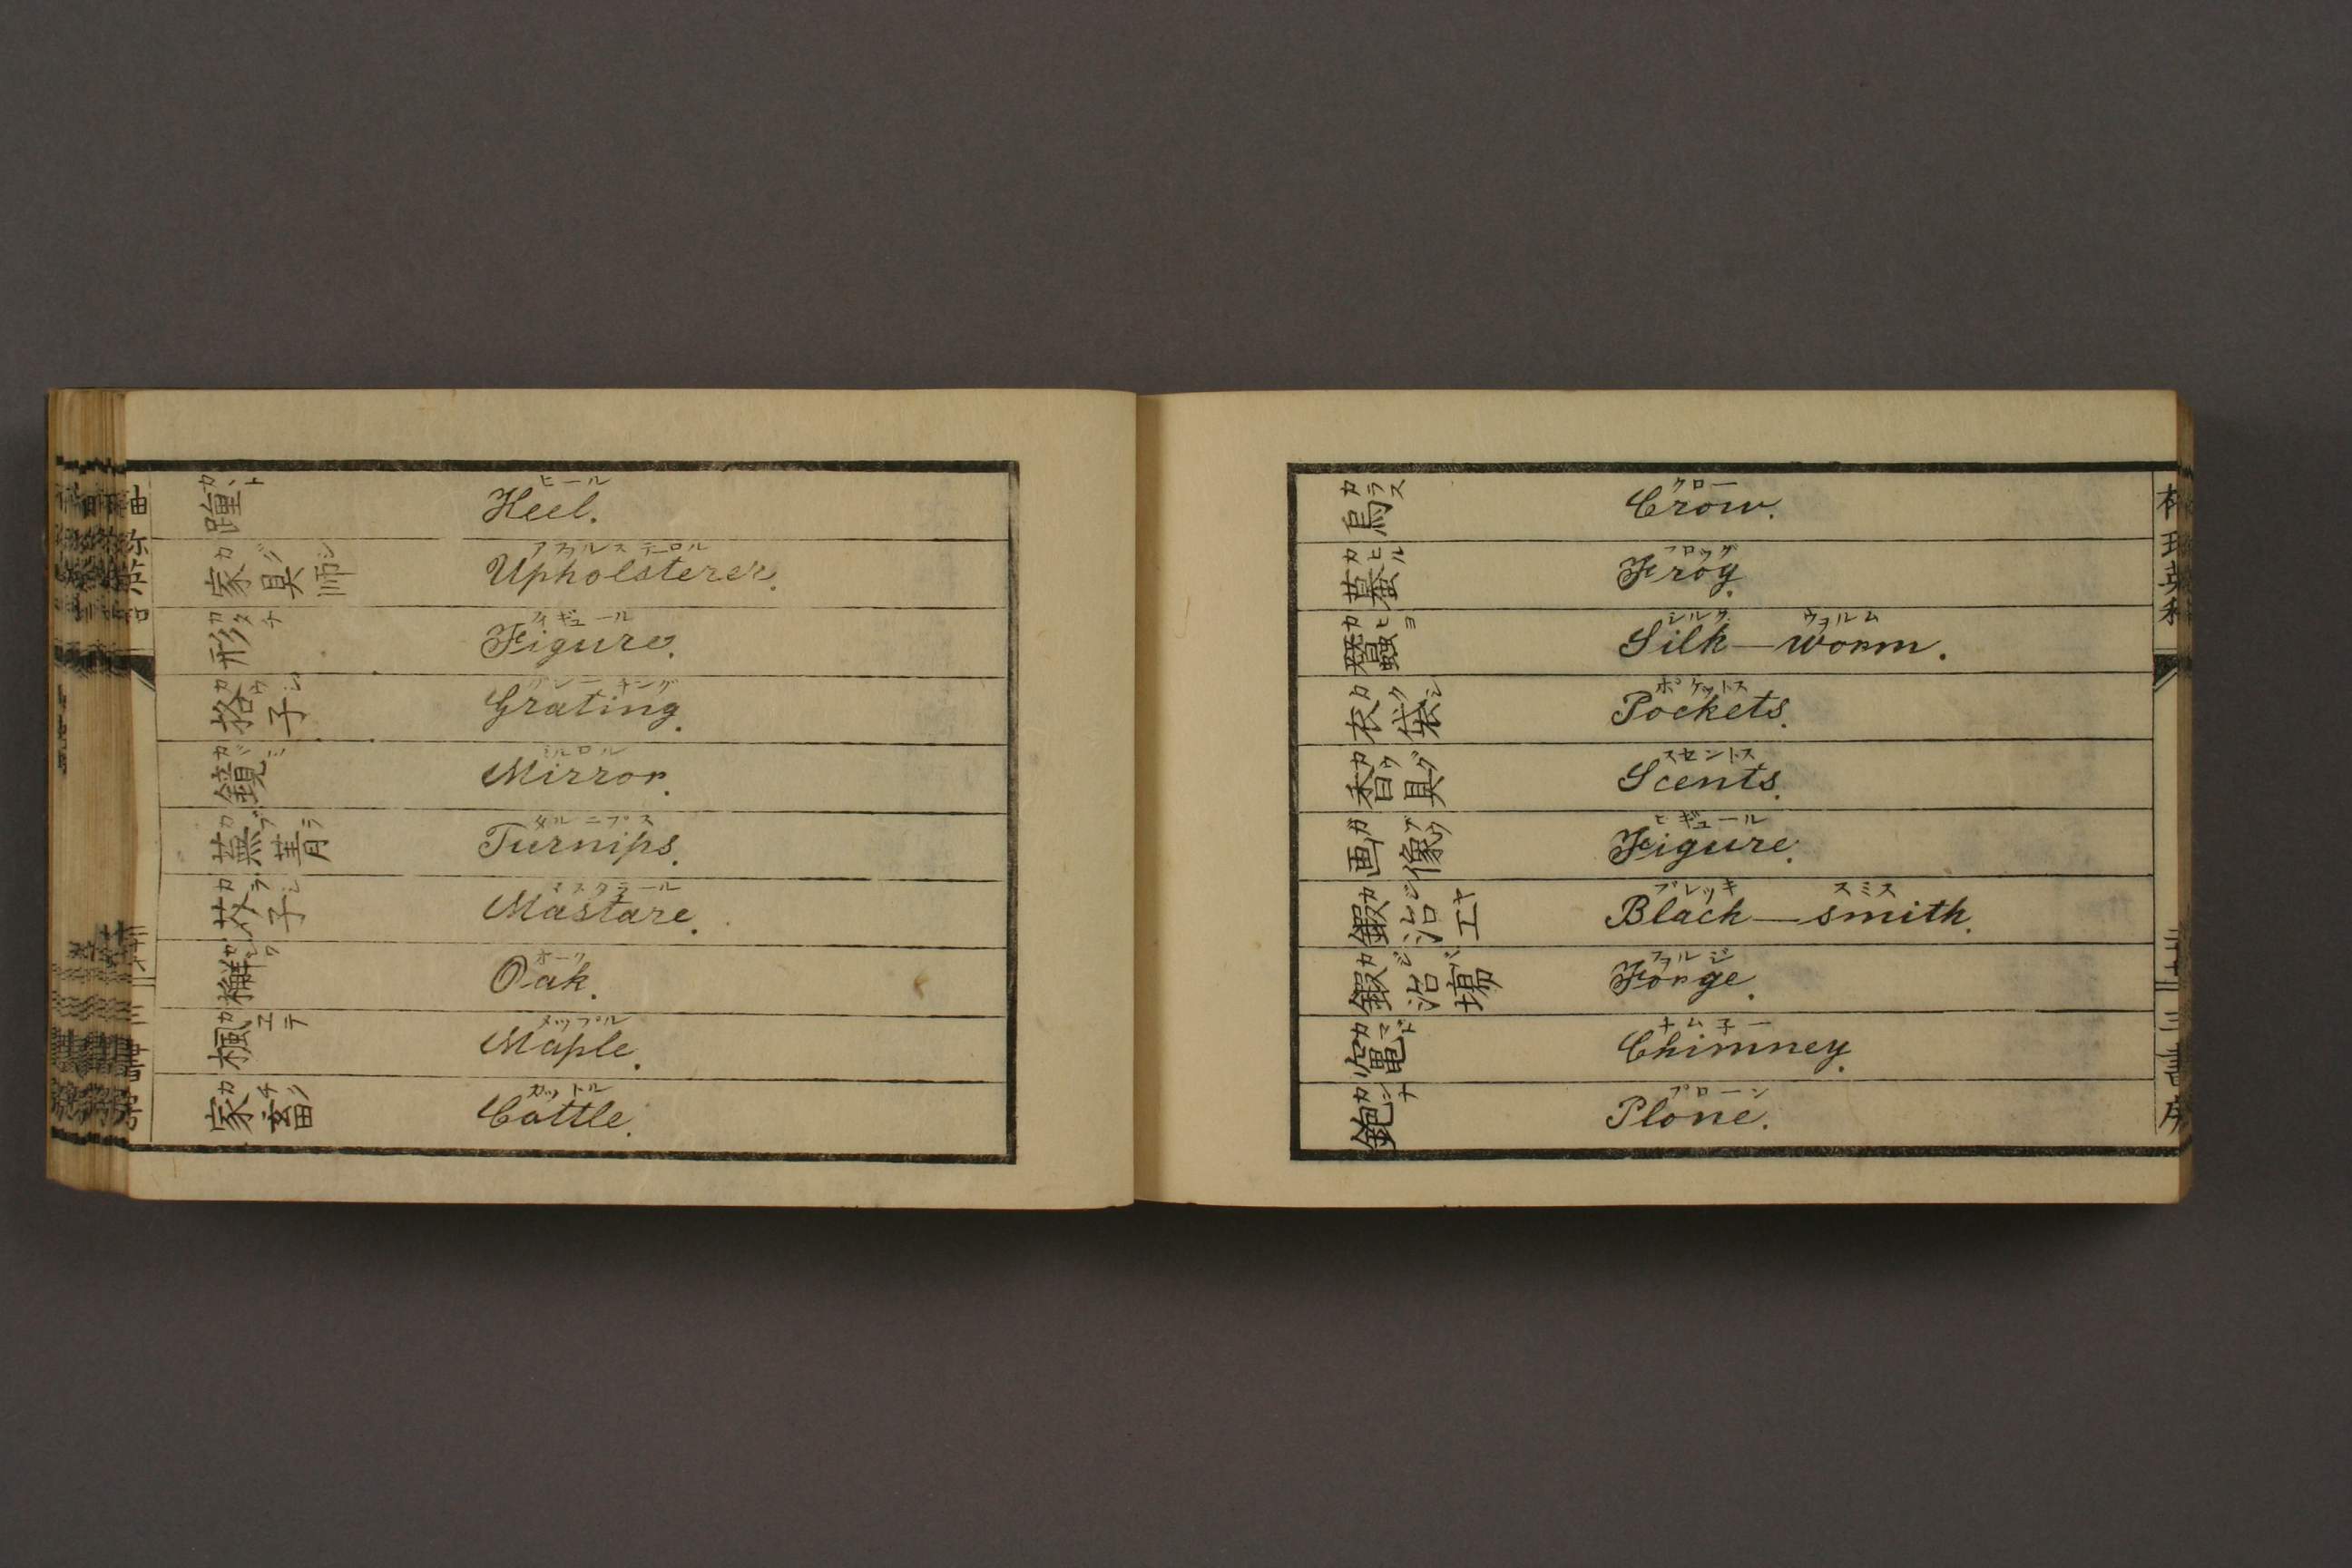 踵 カヽト Heel. ヒール
家具師 カグシ Upholsterer. アフヲルステーロル
形 カタチ Figure. フィギュール
格子 カウシ Grating.
鏡 カヾミ Mirror. ミルロル
蕪菁 カブラ Turnips. タルニプス
芥子 カラシ Mastare. マスタラール
檞 カシワ Oak. オーク
楓 カヱデ Maple. メップル
家畜 カチク Cattle. カットル
烏 カラス Crow. クロー
蟇 カヒル Frog. フロッグ
蠶 カヒコ Silk—worm. シルク ウヲルム
衣袋 カクシ Pockets. ポケットス
香具 カウグ Scents. スセントス
画像 ガゾウ Figure. ヒギュール
鍛冶工 カジヤ Black—smith. ブレッキ スミス
鍛冶場 カジバ Forge. フヲルジ
竈 カマド Chimney. チム子ー
鉋 カンナ Plone. プローン